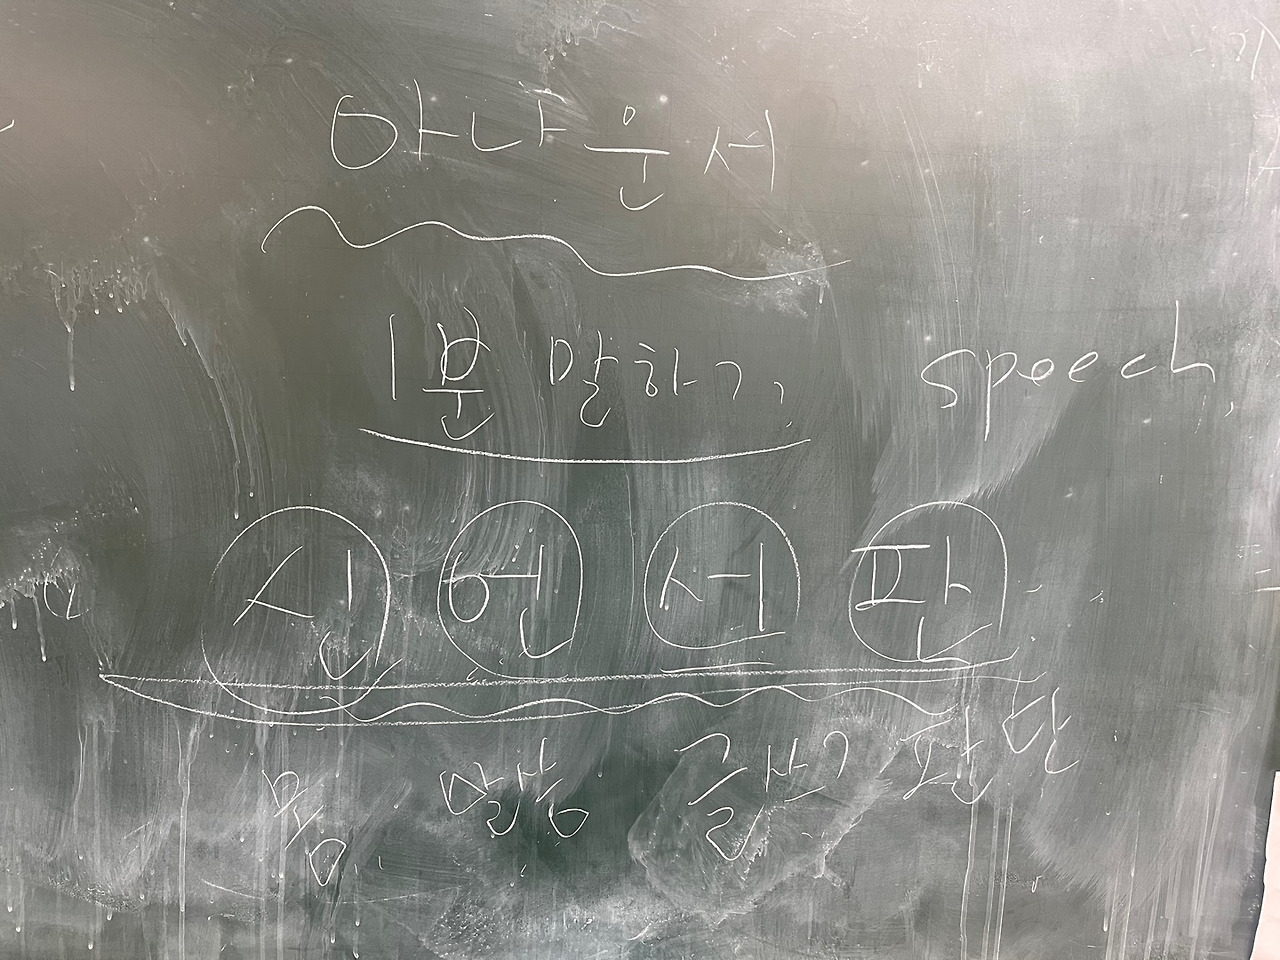 아나운서
1분 말하기, speech,
신 언 서 판
몸 말씀 글씨 판단